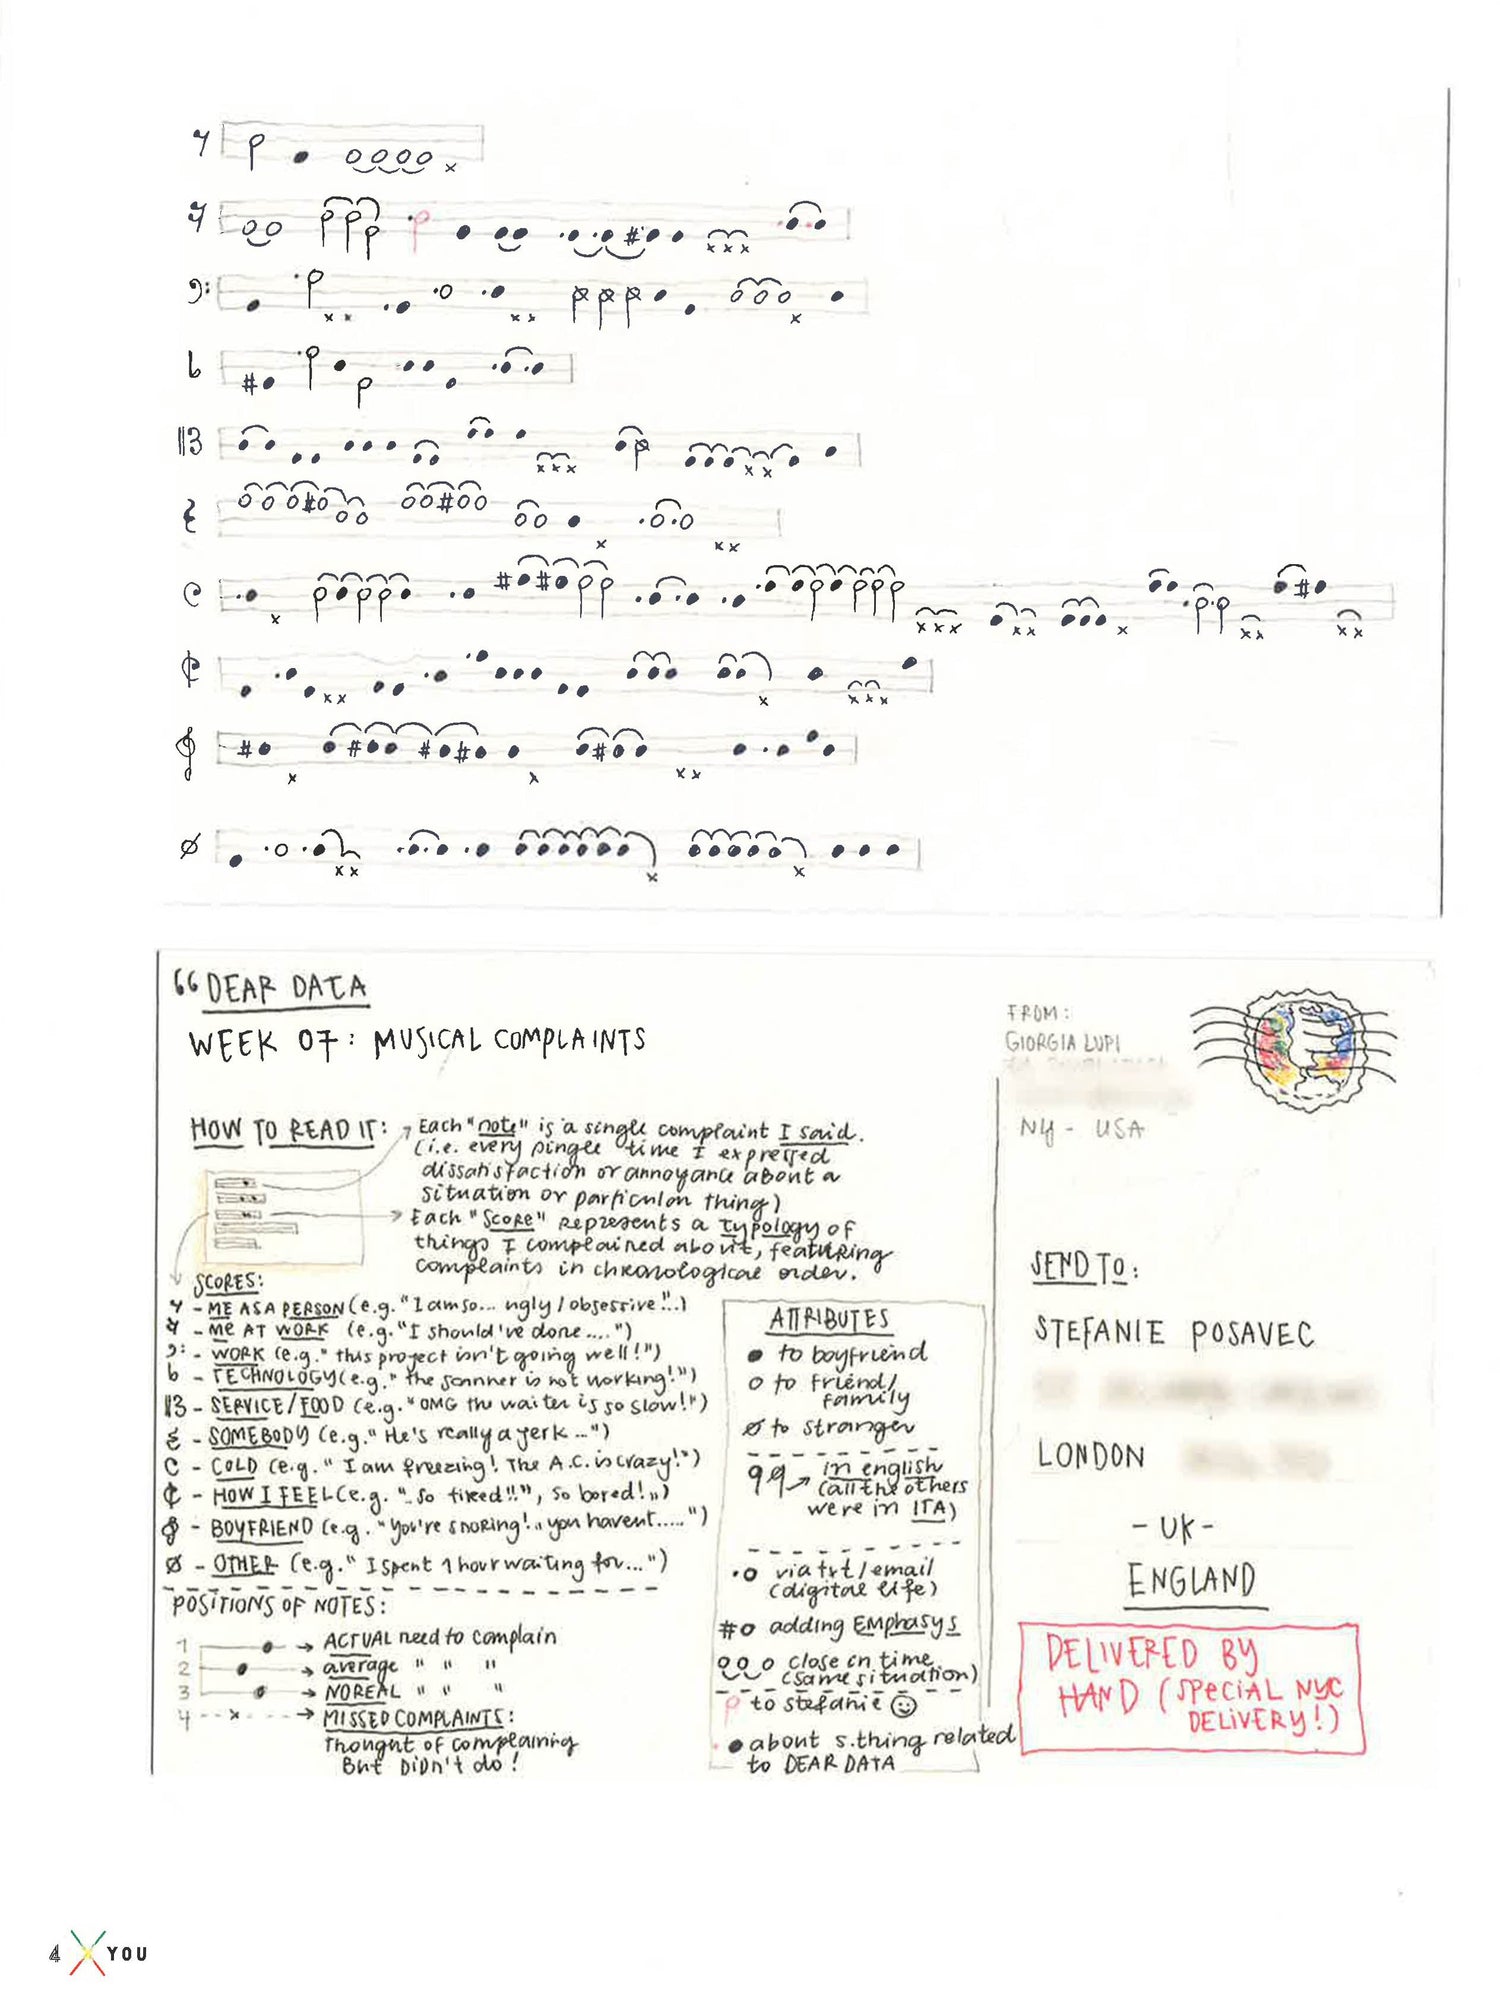 "DEAR DATA
WEEK 07: MUSICAL COMPLAINTS
HOW TO READ IT:
Each "note" is a single complaint I said.
(i.e. every single time I expressed
dissatisfaction or annoyance about a
situation or particular thing)
Each "score" represents a typology of
things I complained about, featuring
complaints in chronological order.
SCORES:
- ME AS A PERSON (e.g. "I am so... ugly/obsessive!"..)
- ME AT WORK (e.g. "I should've done....")
- WORK (e.g. "this project isn't going well!")
- TECHNOLOGY (e.g. "the scanner is not working!")
- SERVICE/FOOD (e.g. "OMG the waiter is so slow!")
- SOMEBODY (e.g. "He's really a jerk...")
C - COLD (e.g. "I am freezing! The A.C. is crazy!")
- HOW I FEEL (e.g. "..So tired!!", so bored!")
- BOYFRIEND (e.g. "You're snoring!.. you havent.....")
ø - OTHER (e.g. "I spent 1 hour waiting for...")
POSITIONS OF NOTES:
1 → ACTUAL need to complain
2 → average " " "
3 → NO REAL " " "
4 --x--- → MISSED COMPLAINTS:
thought of complaining
But DiDn't do!
ATTRIBUTES
to boyfriend
to friend/
family
to stranger
in english
(all the others
were in ITA)
via txt/email
(digital life)
# adding EMPHASYS
close in time
(same situation)
to stefanie
about s.thing related
to DEAR DATA
FROM:
GIORGIA LUPI
NY - USA
SEND TO:
STEFANIE POSAVEC
LONDON
- UK -
ENGLAND
DELIVERED BY
HAND (SPECIAL NYC
DELIVERY!)
4 X YOU